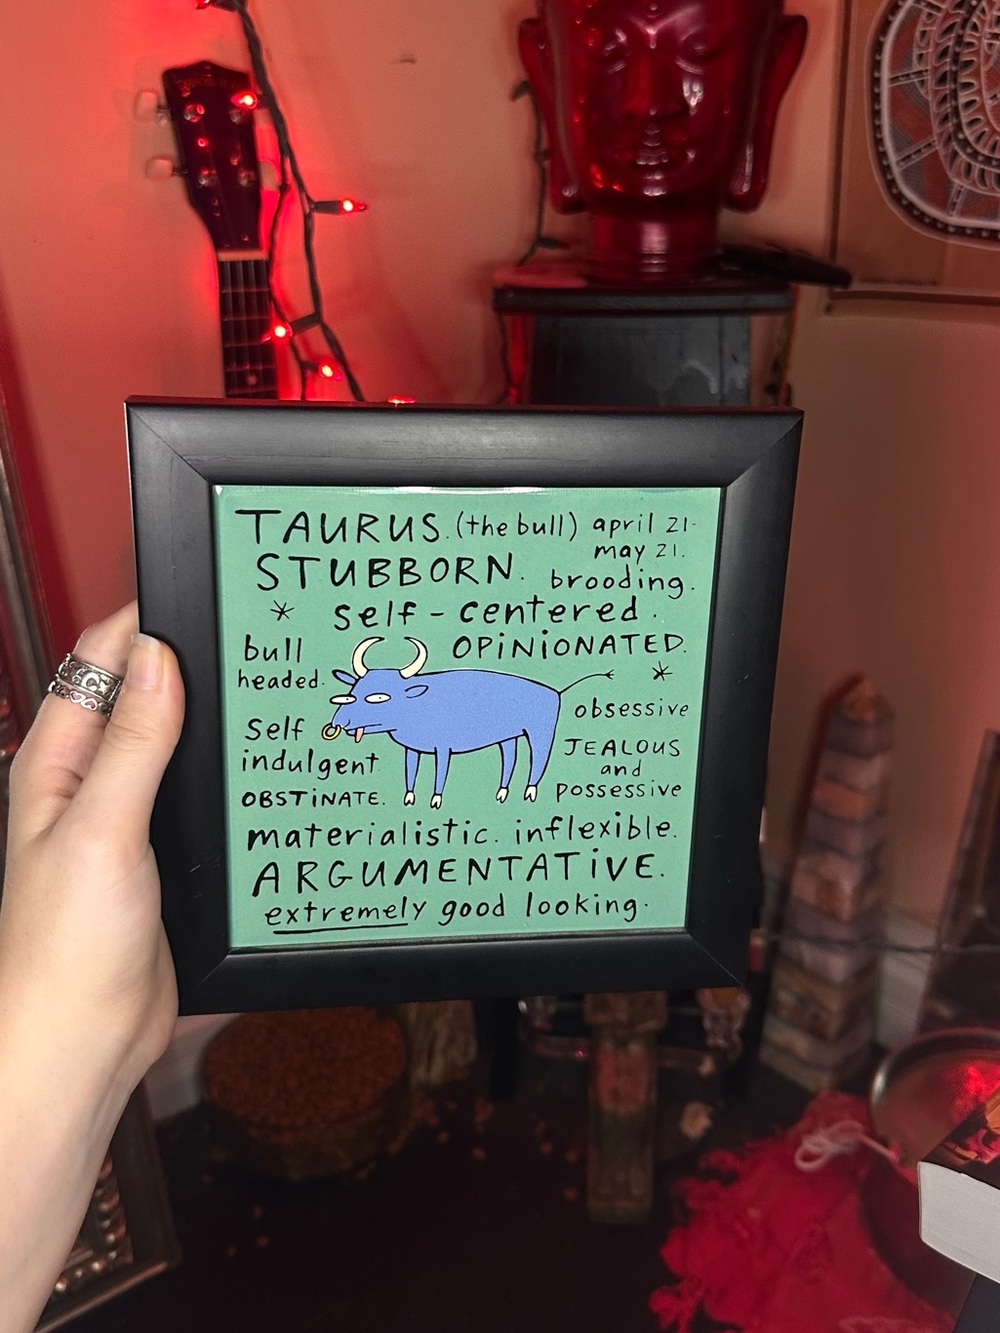 TAURUS. (the bull) april 21-
may 21.
STUBBORN. brooding.
* self-centered.
bull
headed.
OPINIONATED.
*
Self
indulgent
obsessive
JEALOUS
and
possessive
OBSTINATE.
materialistic. inflexible.
ARGUMENTATIVE.
extremely good looking.